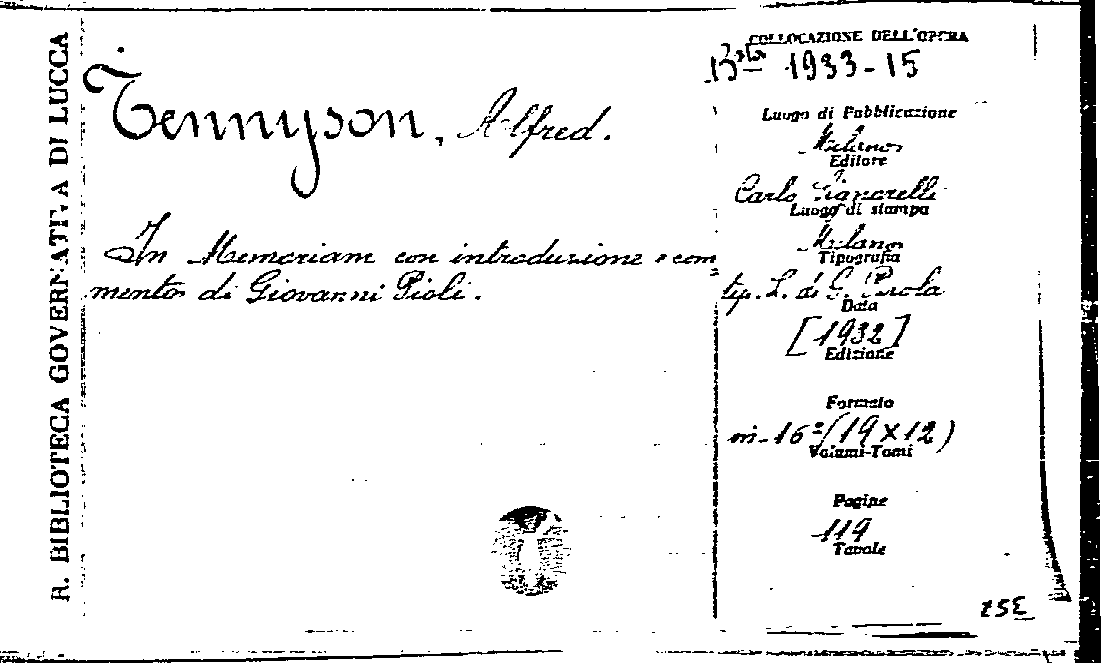 R. BIBLIOTECA GOVERNATIVA DI LUCCA
Tennyson, Alfred.
In Memoriam con introduzione e com=
mento di Giovanni Pioli.
COLLOCAZIONE DELL'OPERA
1933-15
Luogo di Pubblicazione
Milano
Editore
Carlo Signorelli
Luogo di stampa
Milano
Tipografia
tip. L. di G. Pirola
Data
[1932]
Edizione
Formato
in-16º (19 x 12)
Volumi-Tomi
Pagine
119
Tavole